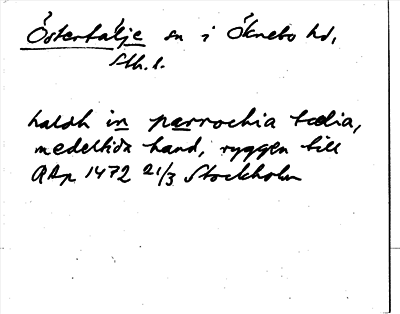 Östertälje sn i Öknebo hd,
Sth. l.
haldh in parrochia tælia,
medeltida hand, ryggen till
RAp 1472 21/3 Stockholm